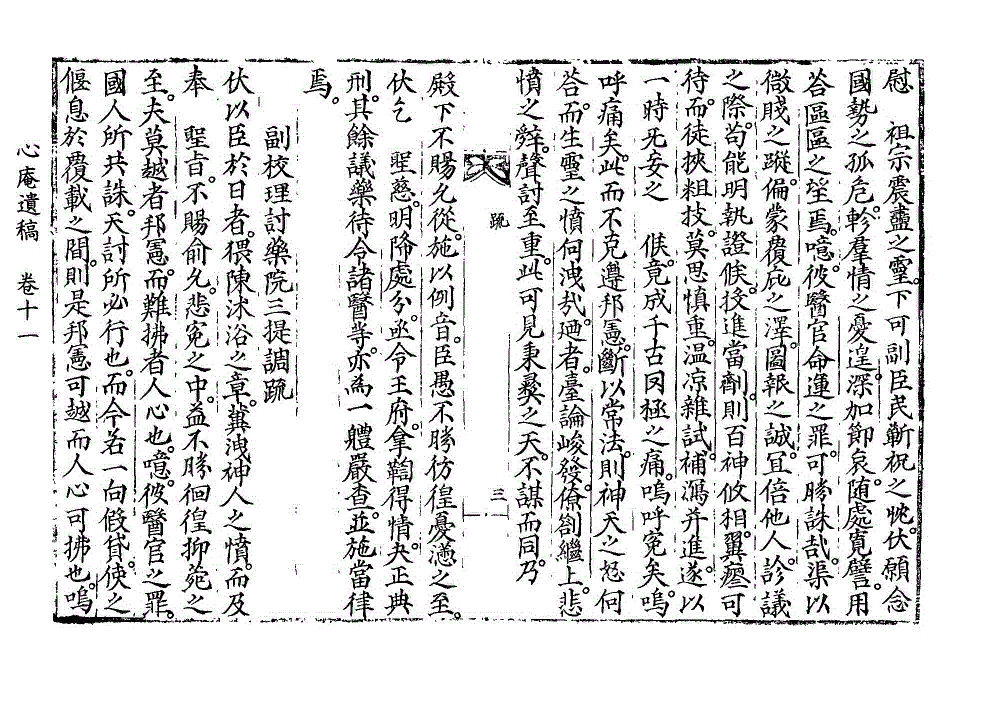 慰 祖宗震盡之靈。下可副臣民蘄祝之忱。伏願念
國勢之孤危。軫羣情之憂遑。深加節哀。随處寬譬。用
答區區之望焉。噫。彼醫官命運之罪。可勝誅哉。渠以
微賤之蹤。偏蒙覆庇之澤。圖報之誠。冝倍他人。診議
之際。苟能明執證候。投進當劑。則百神攸相。翼瘳可
待。而徒挾粗技。莫思愼重。温凉雜試。補瀉并進。遂以
一時旡妄之 候。竟成千古罔極之痛。嗚呼寃矣。嗚
呼痛矣。此而不克遵邦憲。斷以常法。則神天之怒何
答。而生靈之憤何洩哉。廼者。臺論峻發。僚劄繼上。悲
憤之辭。聲討至重。此可見秉彜之天。不謀而同。乃
疏
三
殿下不賜允從。施以例音。臣愚不勝彷徨憂懣之至。
伏乞 聖慈。明降處分。亟令王府。拿鞫得情。夬正典
刑。其餘議藥待令諸醫等。亦爲一軆嚴查。並施當律
焉。
副校理討藥院三提調䟽
伏以臣於日者。猥陳沐浴之章。冀洩神人之憤。而及
奉 聖旨。不賜俞允。悲寃之中。益不勝徊徨抑菀之
至。夫莫越者邦憲。而難拂者人心也。噫。彼醫官之罪。
國人所共誅。天討所必行也。而今若一向假貸。使之
偃息於覆載之間。則是邦憲可越而人心可拂也。嗚
心庵遺稿 卷十一